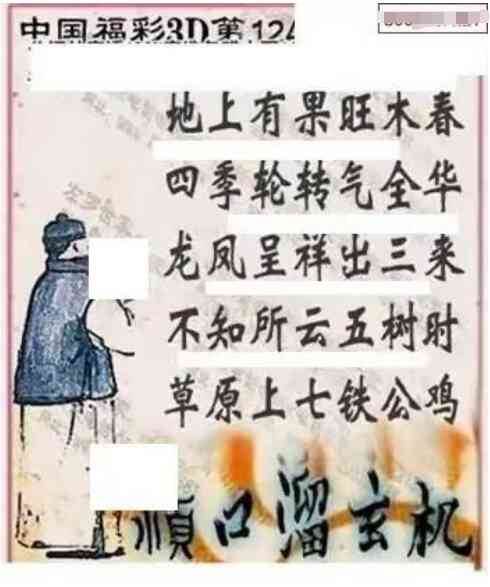 中国福彩3D第124
地上有果旺木春
四季轮转气全华
龙凤呈祥出三来
不知所云五树时
草原上七铁公鸡
顺口溜玄机